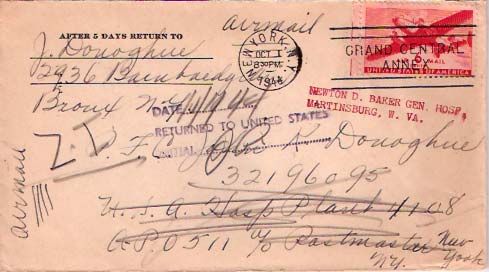 AFTER 5 DAYS RETURN TO
airmail
J. Donoghue
2936 Bainbridge
Bronx N.Y.
NEW YORK, N.Y.
OCT 1
8 30 PM
1944
GRAND CENTRAL
ANNEX
6¢
AIR MAIL
UNITED STATES OF AMERICA
NEWTON D. BAKER GEN. HOSP.
MARTINSBURG, W. VA.
DATE
RETURNED TO UNITED STATES
INITIAL
P.F.C. K. Donoghue
32196095
U.S.A. Hosp Plant 4108
A.P.O 511 c/o Postmaster New York
N.Y.
airmail